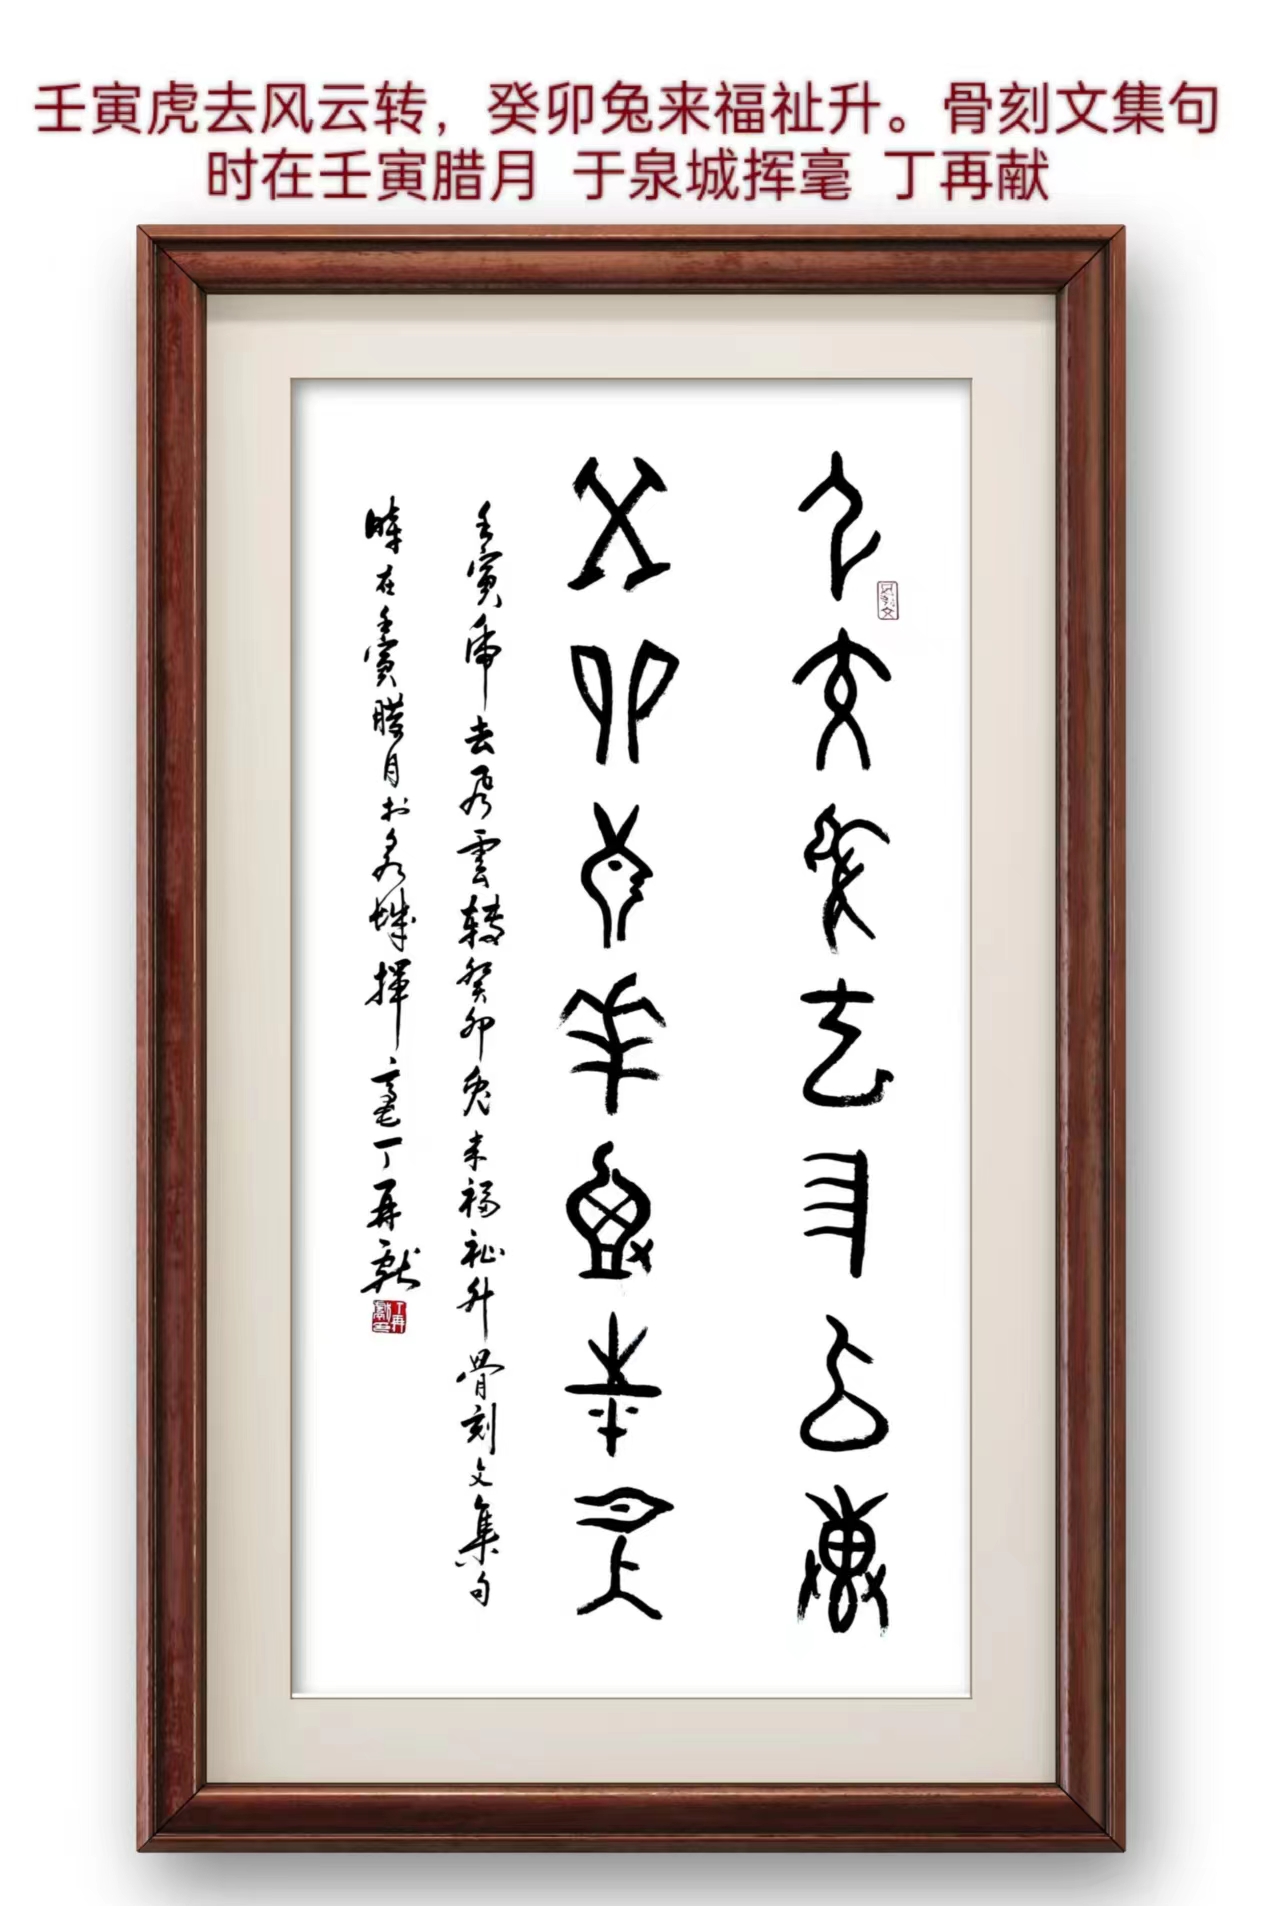 壬寅虎去风云转，癸卯兔来福祉升。骨刻文集句
时在壬寅腊月 于泉城挥毫 丁再献
壬寅虎去风云转
癸卯兔来福祉升
壬寅虎去風雲轉癸卯兔来福祉升骨刻文集句
時在壬寅腊月於泉城揮毫丁再献
丁再献印